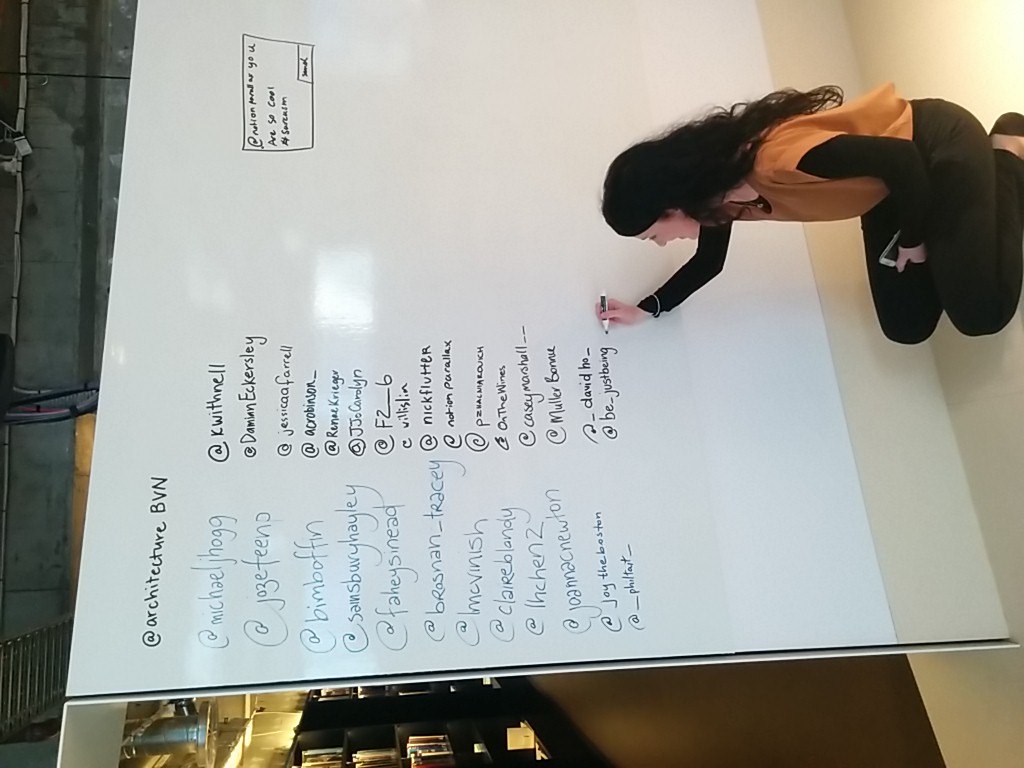 @architecture BVN
@michaeljhogg
@jozefeenp
@bimboffin
@sainsburyhayley
@faheysinead
@brosnan_tracey
@lmcvinish
@claireblandy
@lhchen2
@joannacnewton
@joytheboston
@_philtait_
@kwithnell
@DamianEckersley
@jessicaafarrell
@acrobinson_
@ReneeKrieger
@JJoCarolyn
@FZ__6
@nickflutter
@notionparallax
@OnTheWines
@caseymarshall__
@MullerBonnie
@_davidho_
@be_justbeing
@notionparallax you
Are so cool
#sarcasm
send